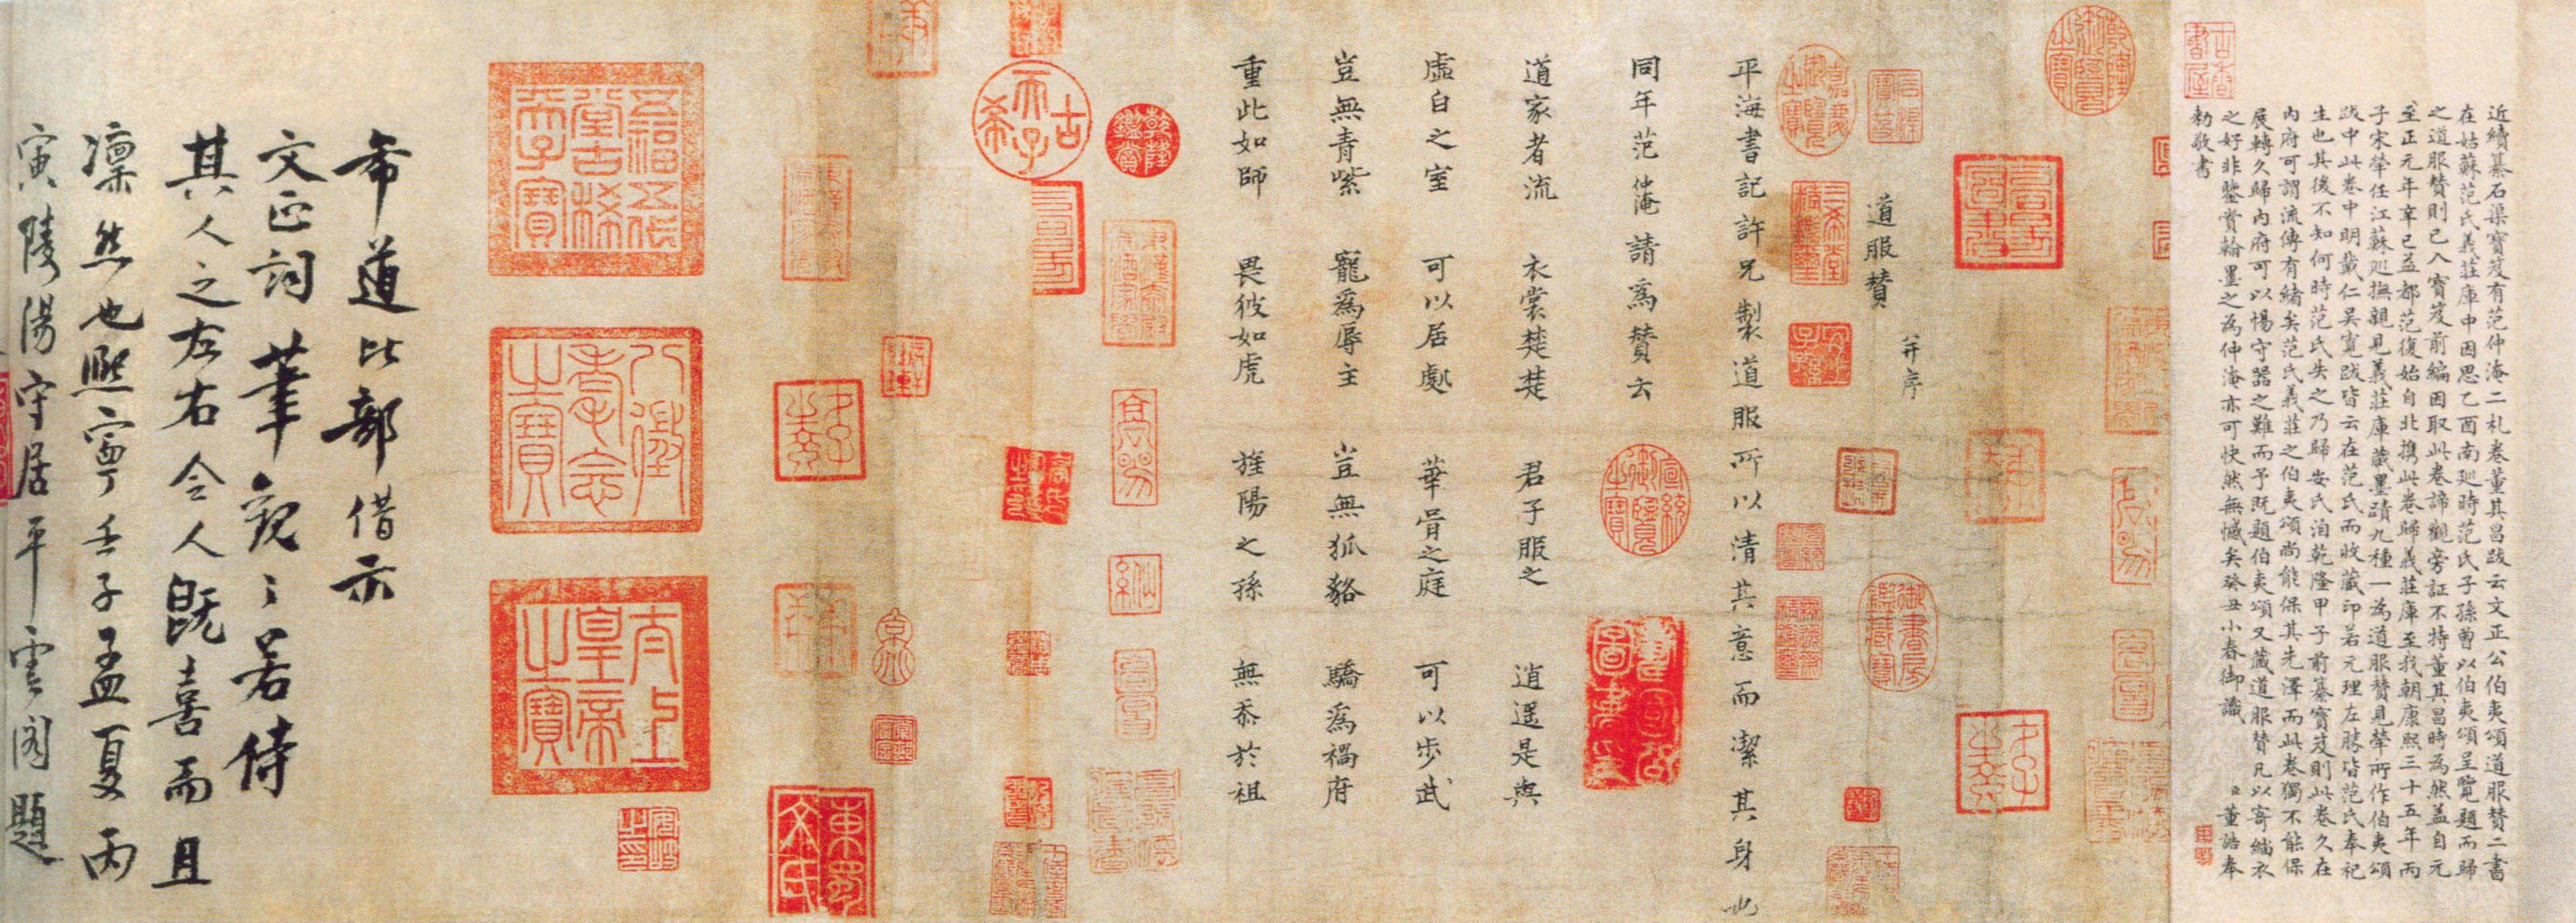 近續纂石渠寶笈有范仲淹二札卷董其昌跋云文正公伯夷頌道服贊二書
在姑蘇范氏義莊庫中因思乙酉南巡時范氏子孫曾以伯夷頌呈覽題而歸
之道服贊則已入寶笈前編因取此卷諦觀旁証不特董其昌時為然蓋自元
至正元年辛巳益都范復始自北携此卷歸義莊庫至我朝康熙三十五年丙
子宋犖任江蘇廵撫親見義莊庫藏墨蹟九種一為道服贊見犖所作伯夷頌
跋中此卷中明戴仁吴寛跋皆云在范氏而收藏印若元理左勝皆范氏奉祀
生也其後不知何時范氏失之乃歸安氏洎乾隆甲子前纂寶笈則此卷久在
内府可謂流傳有緒矣范氏義莊之伯夷頌尚能保其先澤而此卷獨不能保
展轉久歸内府可以愓守器之難而予既題伯夷頌又藏道服贊凡以寄緇衣
之好非鑒賞翰墨之為仲淹亦可快然無憾矣癸丑小春御識 臣董誥奉
勅敬書
古香書屋
道服贊 并序
平海書記許兄製道服所以清其意而潔其身也
同年范仲淹請為贊云
道家者流 衣裳楚楚 君子服之 逍遥是與
虛白之室 可以居處 華胥之庭 可以步武
豈無青紫 寵為辱主 豈無狐貉 驕為禍府
重此如師 畏彼如虎 旌陽之孫 無忝於祖
乾隆御覽之寶
嘉慶御覽之寶
三希堂精鑑璽
宜子孫
宣統御覽之寶
御書房鑑藏寶
乾隆鑑賞
古希天子
五福五代堂古稀天子寶
八徵耄念之寶
太上皇帝之寶
希道比部借示
文正詞筆觀之若侍
其人之左右令人既喜而且
凜然也熙寧壬子孟夏丙
寅陵陽守居平雲閣題